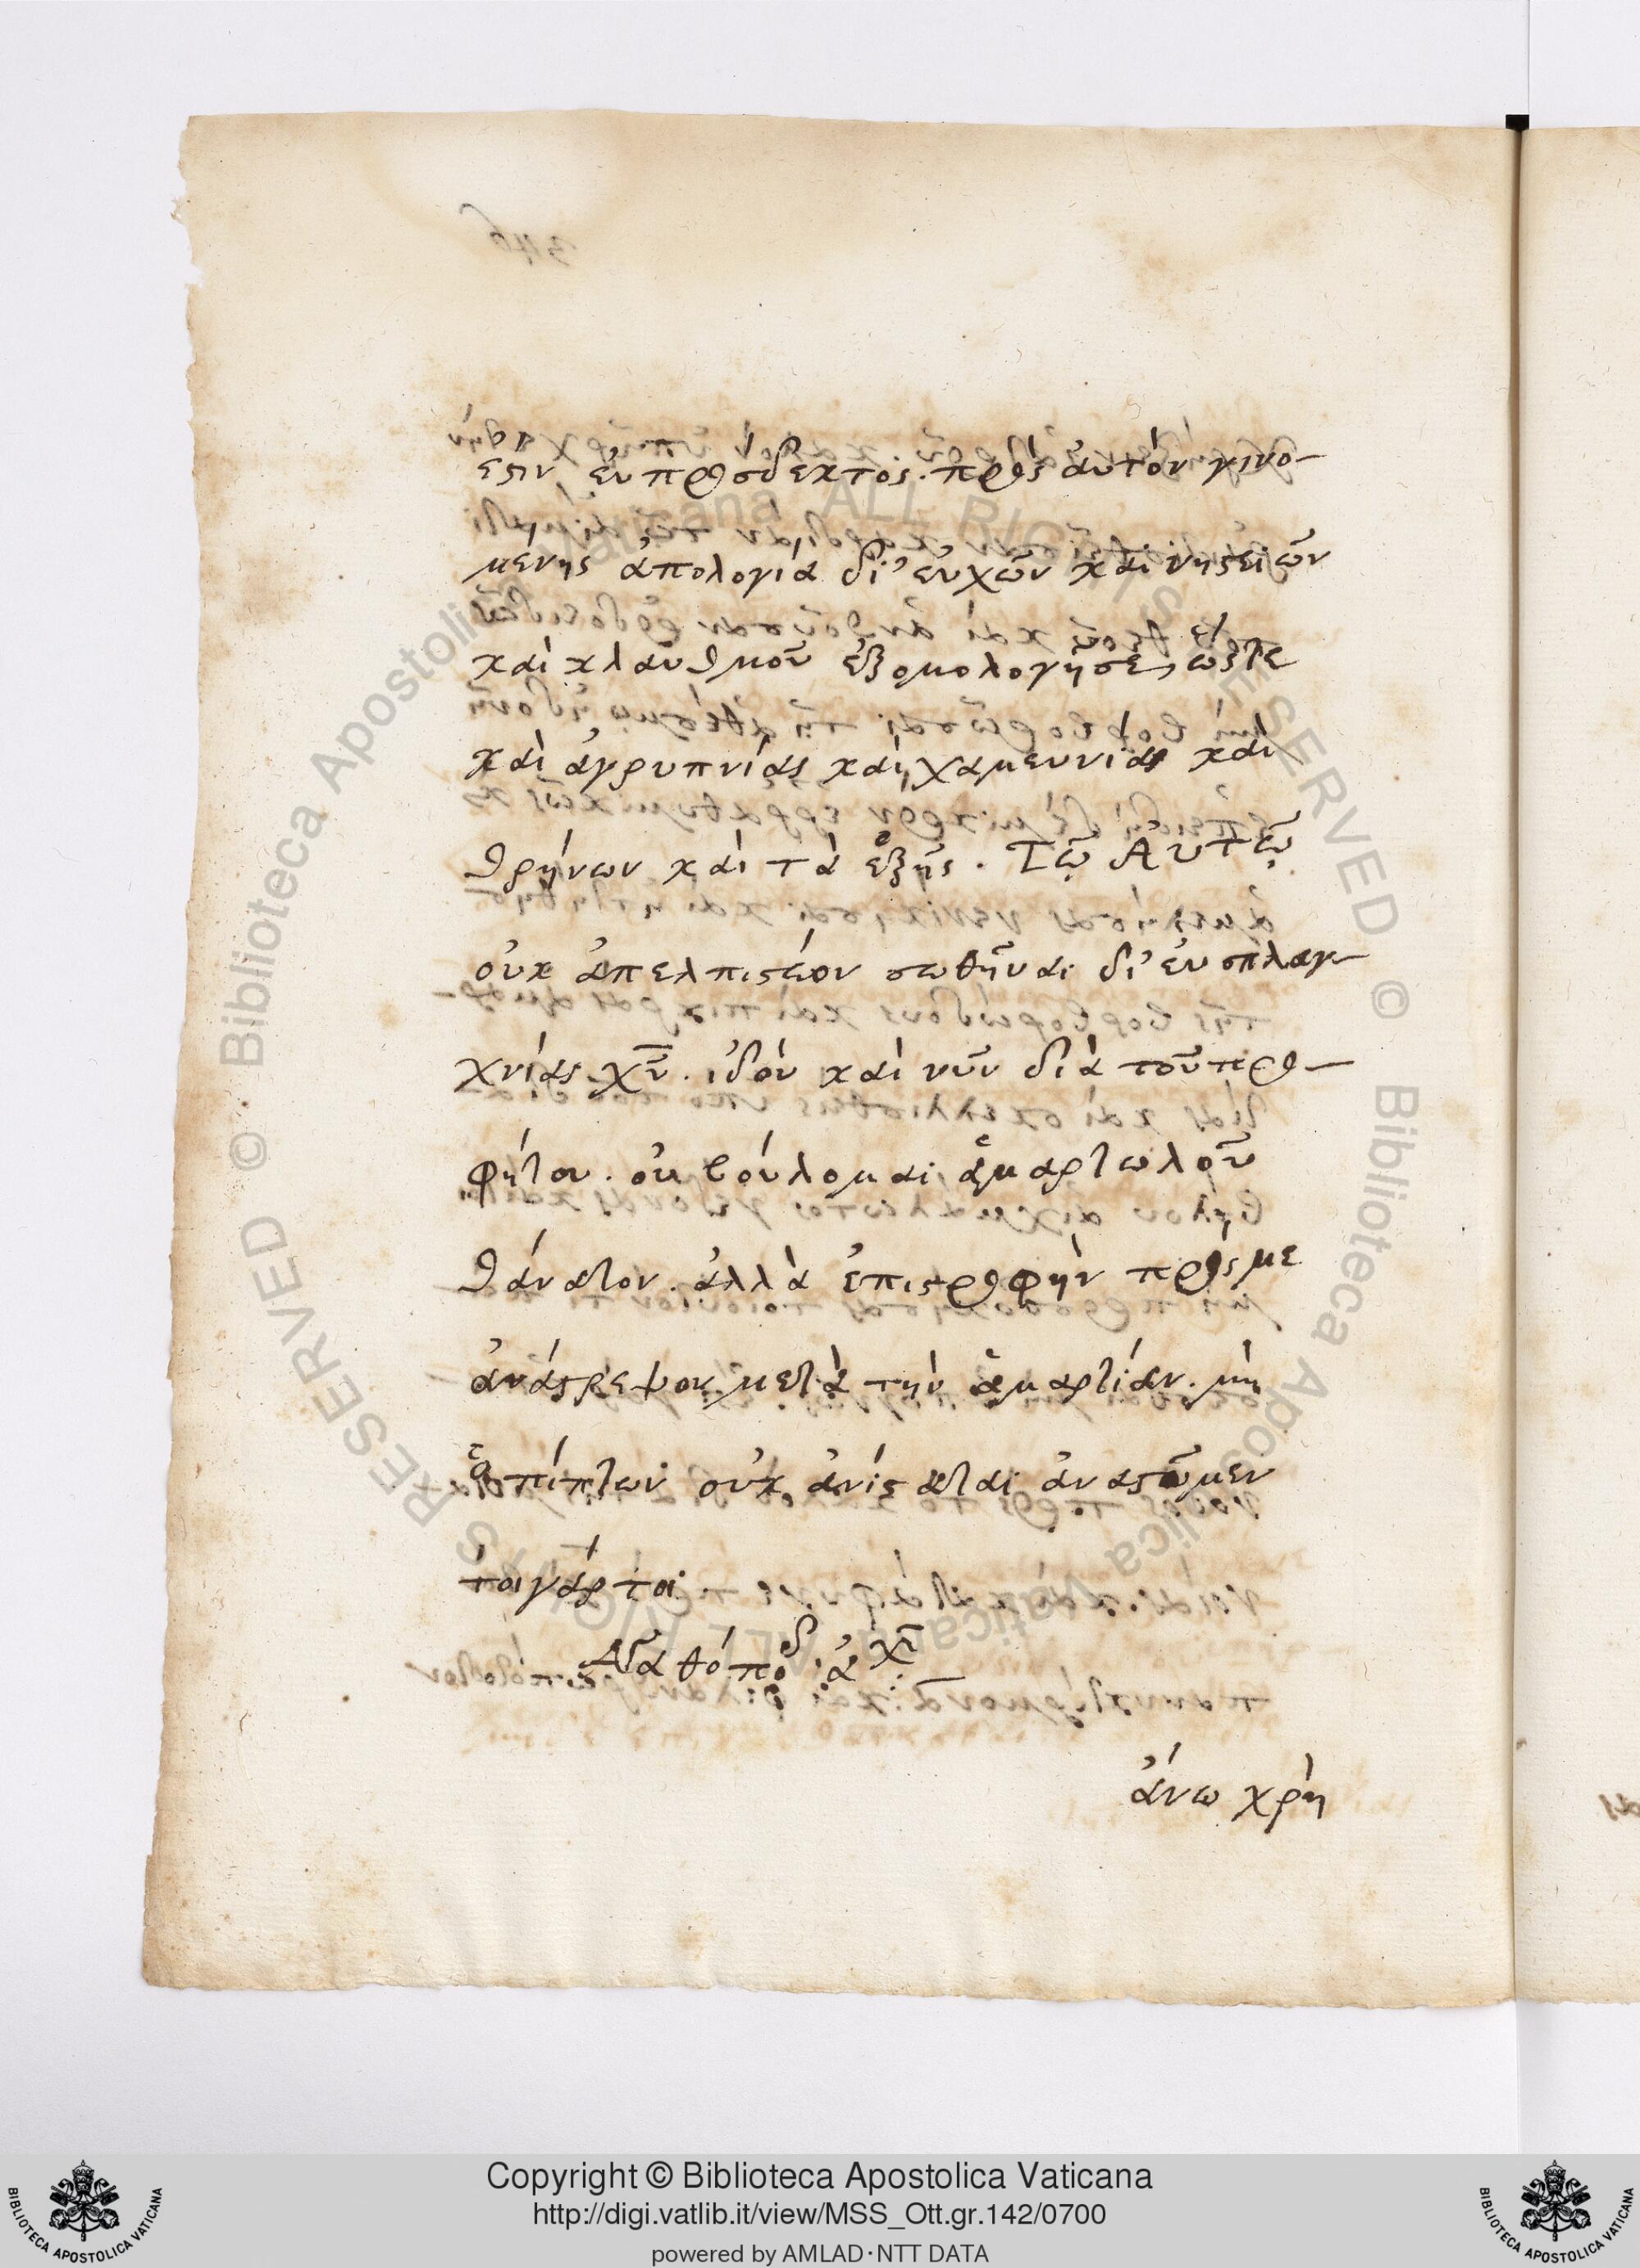 ἐστὶν εὐπρόσδεκτος. πρὸς αὐτὸν γινο-
μένης ἀπολογία δι' εὐχῶν καὶ νηστειῶν
καὶ κλαυθμοῦ ἐξομολογήσε
καὶ ἀγρυπνίας καὶ χαμευνίας καὶ
θρήνων καὶ τὰ ἑξῆς. Τῷ Αὐτῷ
οὐκ ἀπελπιστέον σωθῆναι δι' εὐσπλαγ-
χνίας χῦ. ἰδοὺ καὶ νῦν διὰ τοῦ προ-
φήτου. οὐ βούλομαι ἁμαρτωλοῦ
θάνατον. ἀλλὰ ἐπιστροφὴν πρός με
ἀνάστρεψον μετὰ τὴν ἁμαρτίαν. μὴ
ὁ πίπτων οὐκ ἀνίσταται ἀναστῶμεν
τοιγάρτοι
Ἀγαθόποδ
ἄνω χρὴ
Copyright © Biblioteca Apostolica Vaticana
http://digi.vatlib.it/view/MSS_Ott.gr.142/0700
powered by AMLAD·NTT DATA
BIBLIOTECA APOSTOLICA VATICANA
BIBLIOTECA APOSTOLICA VATICANA